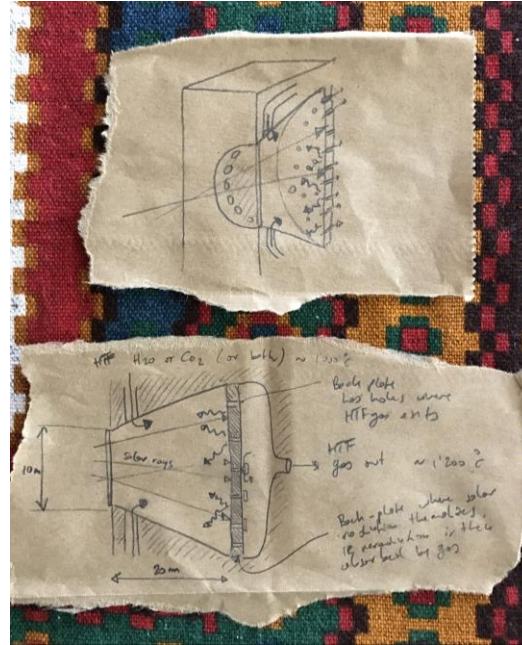 HTF H2O or CO2 (or both) ~ 1000°C
Back plate
has holes where
HTF gas exits
10m
solar rays
HTF
gas out ~ 1'200°C
Back-plate where solar
radiation thermalizes.
IR reradiation is then
absorbed by gas
20m